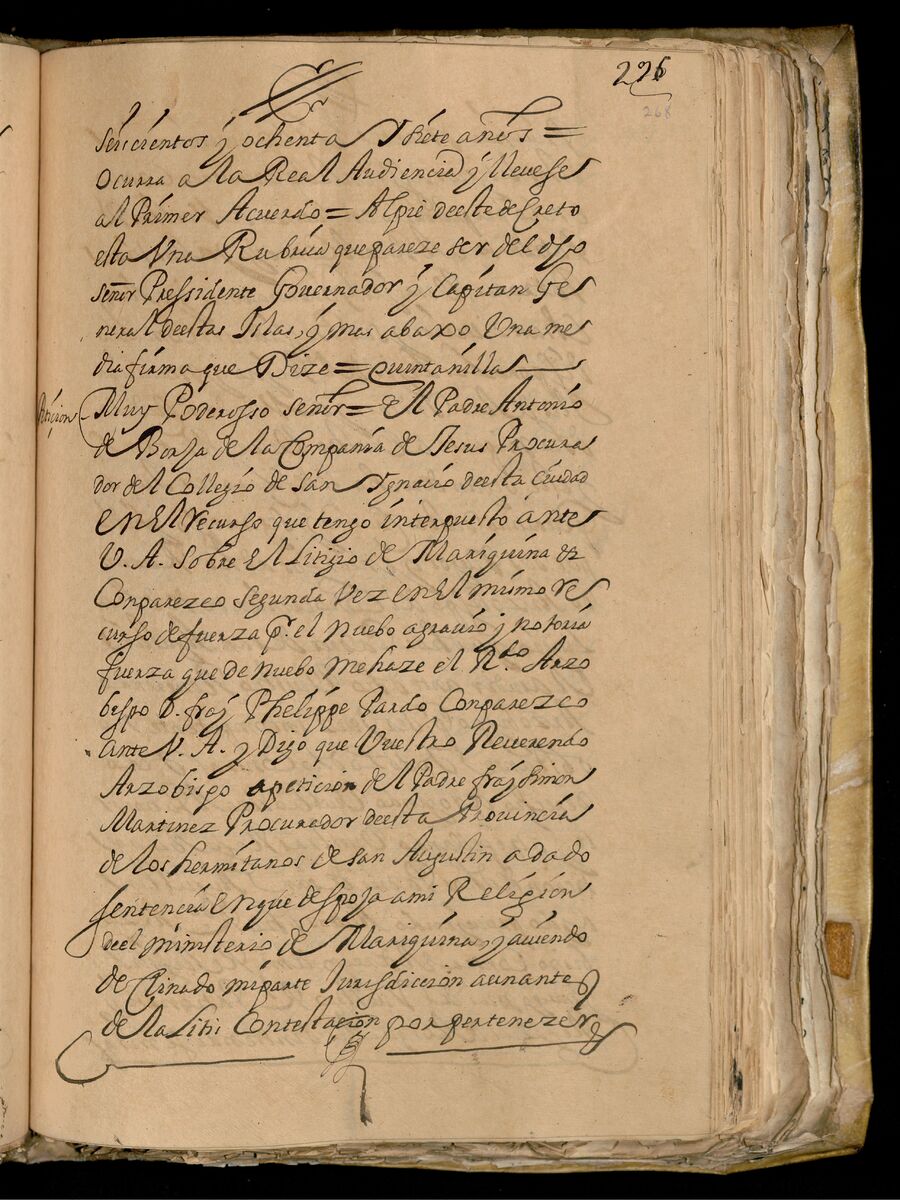 226
268
seiscientos y ochenta y siete años =
Ocurra a la Real Audiencia y llevese
al Primer Acuerdo = Al pie de este decreto
esta Una Rubrica que pareze ser del dho
señor Pressidente Governador y Capitan Ge
neral de estas Islas, y mas abaxo Una me
dia firma que Dize = quintanilla
Petición
Muy Poderosso señor = El Padre Antonio
de Borja de la Compania de Jesus Procura
dor del Collegio de san Ignacio de esta Ciudad
en El recurso que tengo interpuesto ante
V. A. sobre El Litigio de Mariquina &
Conparezco segunda Vez en El mismo re
curso de fuerza pr. el nuebo agravio y notoria
fuerza que de nuebo me haze el Rdo Arzo
bispo D. fray Phelippe Pardo Conparezco
ante V. A. y Digo que Vuestro Reverendo
Arzobispo a peticion del Padre fray simon
Martinez Procurador de esta Provincia
de los hermitanos de san Augustin a dado
sentencia en que despoja a mi Religion
de el ministerio de Mariquina, y aviendo
declinado mi parte Jurisdiccion aun ante
de la Litis Contestacion por pertenezer